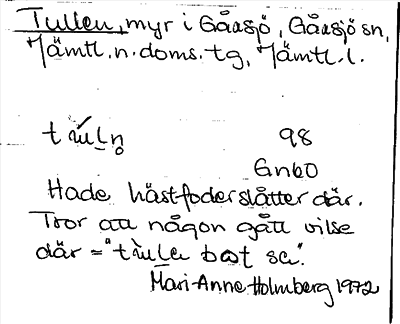 Tullen, myr i Gåxsjö, Gåxsjö sn,
Jämtl. n. doms. tg, Jämtl. l.
98
Gnbo
Hade hästfoderslåtter där.
Tror att någon gått vilse
där =
Mari-Anne Holmberg 1972